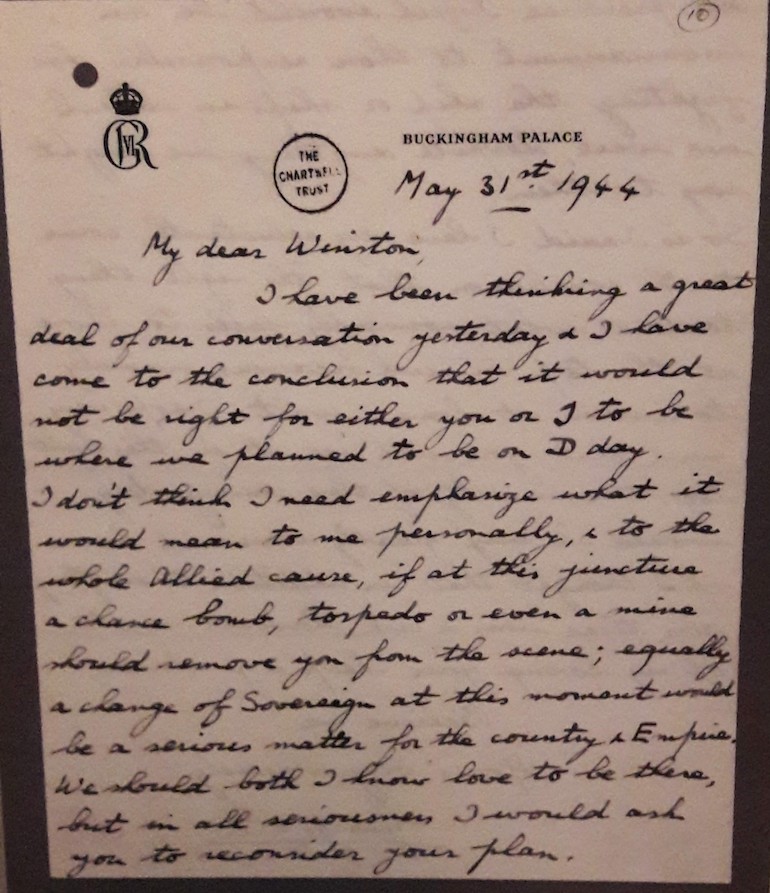 10
GVIR
THE
CHARTWELL
TRUST
BUCKINGHAM PALACE
May 31st. 1944
My dear Winston,
I have been thinking a great
deal of our conversation yesterday & I have
come to the conclusion that it would
not be right for either you or I to be
where we planned to be on D day.
I don't think I need emphasize what it
would mean to me personally, & to the
whole Allied cause, if at this juncture
a chance bomb, torpedo or even a mine
should remove you from the scene; equally
a change of Sovereign at this moment would
be a serious matter for the country & Empire.
We should both I know love to be there,
but in all seriousness I would ask
you to reconsider your plan.